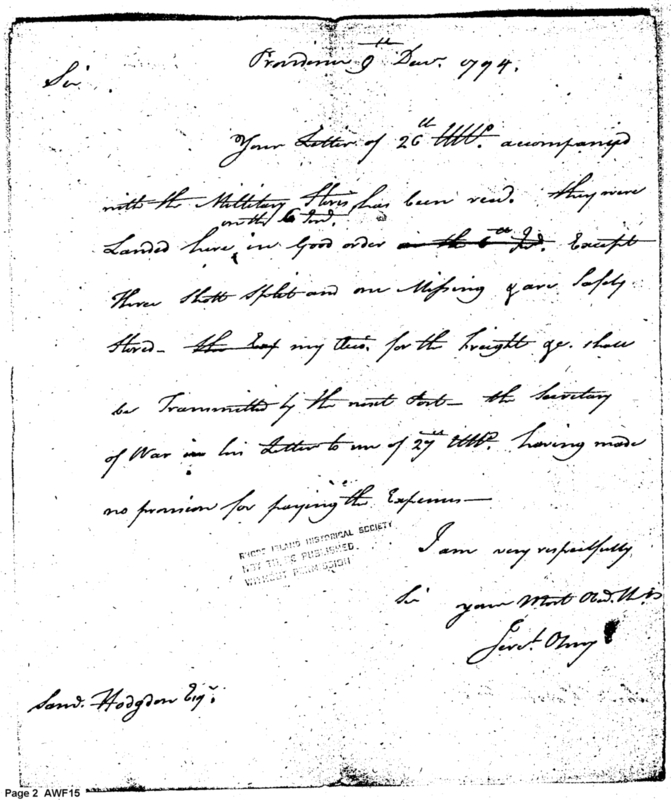 Providence 9th Decr. 1794.
Sir
Your Letter of 26th Ulto. accompanied
with the Millitary Stores has been recd. they were
on the 6 Ind.
Landed here in Good order on the 6th Ind. Except
Three Shott Split and one Missing & are Safely
Stored - the Exp my for the freight &c. shall
be Transmitted by the next Post - the Secretary
of War in his Letter to me of 27th Ulto. having made
no provision for paying the Expences -
RHODE ISLAND HISTORICAL SOCIETY
NOT TO BE PUBLISHED
WITHOUT PERMISSION
I am very respectfully
Sir your Most Obd.
Jereh. Olney
Saml. Hodgdon Esqr.
Page 2 AWF15